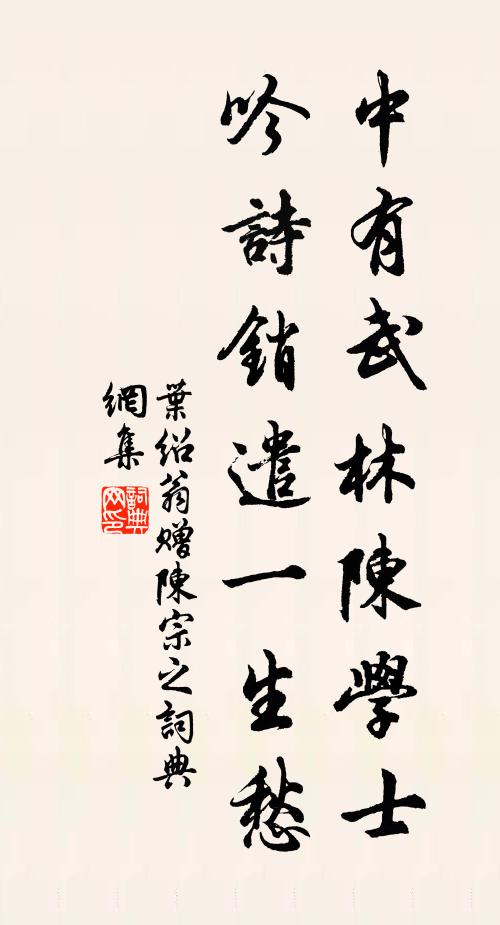 中有武林陳學士
吟詩銷遣一生愁
葉紹翁贈陳宗之詞典
網集
詞典
网印